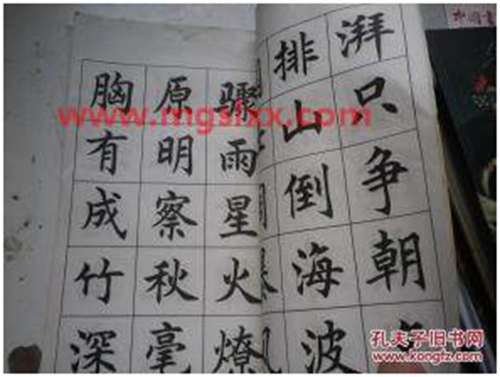 湃只争朝
排山倒海波
骤雨星火燎
原明察秋毫
胸有成竹深
孔夫子旧书网